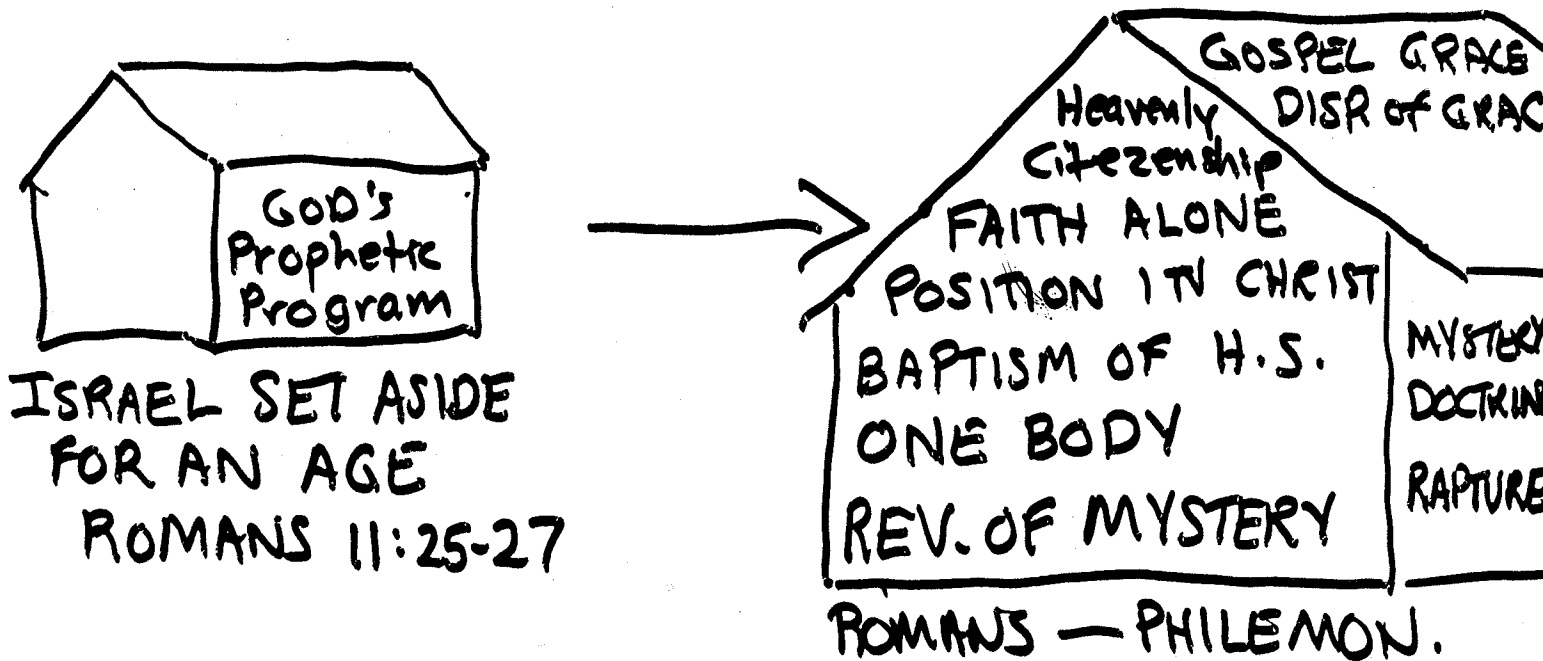 GOD'S
Prophetic
Program
ISRAEL SET ASIDE
FOR AN AGE
ROMANS 11:25-27
GOSPEL GRACE
DISP. of GRAC
Heavenly
Citezenship
FAITH ALONE
POSITION IN CHRIST
BAPTISM OF H.S.
ONE BODY
REV. OF MYSTERY
MYSTERY
DOCTRIN
RAPTURE
ROMANS — PHILEMON.